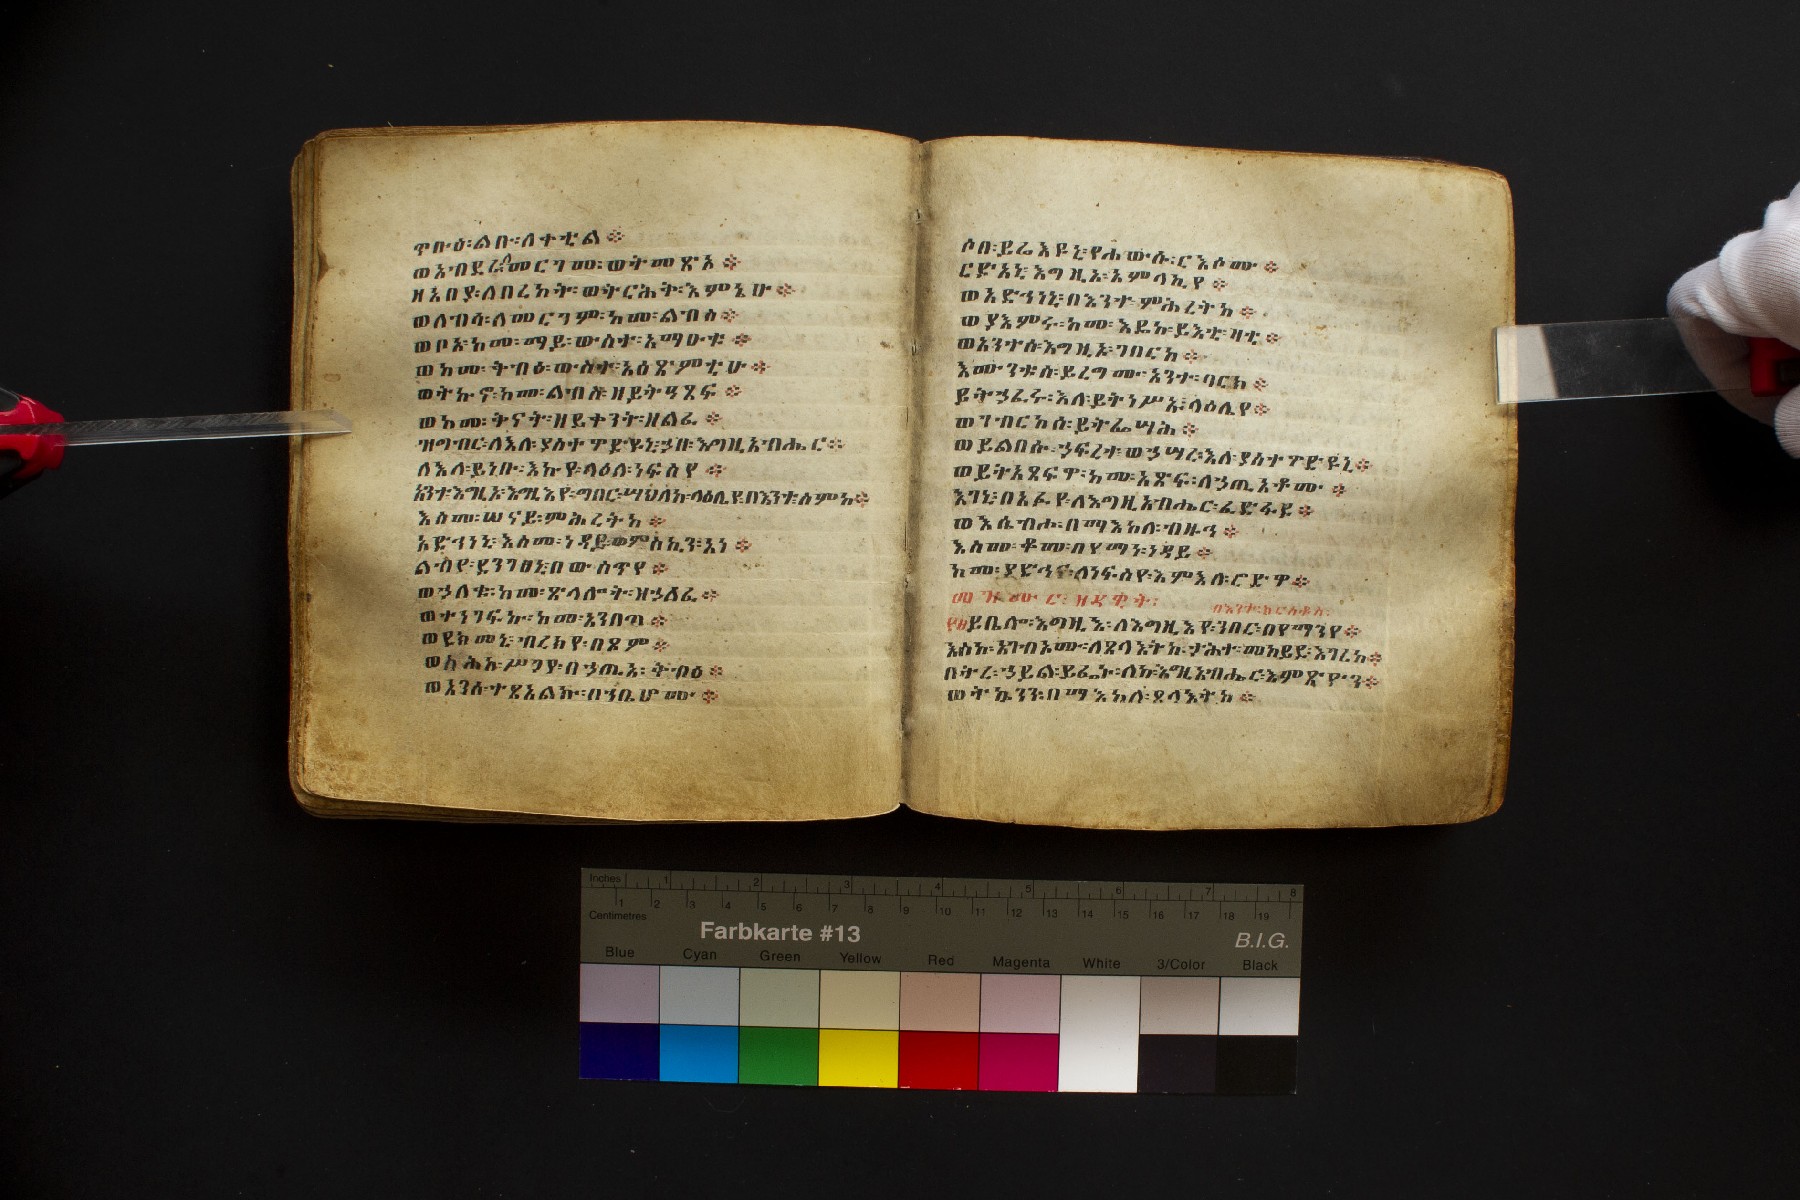 ጥቡዕ፡ልቡ፡ለቀቲል፨
ወአብደረ፡መርገመ፡ወትመጽኦ፨
ዘአበያ፡ለበረከት፡ወትርሕቅ፡እምኔሁ፨
ወለብሳ፡ለመርገም፡ከመ፡ልብስ፨
ወቦአ፡ከመ፡ማይ፡ውስተ፡አማዑቱ፨
ወከመ፡ቅብዕ፡ውስተ፡አዕጽምቲሁ፨
ወትኩኖ፡ከመ፡ልብሱ፡ዘይትዓጸፍ፨
ወከመ፡ቅናት፡ዘይቀንት፡ዘልፈ፨
ዝግብር፡ለእለ፡ያስተዋድዩኒ፡ኃበ፡እግዚአብሔር፨
ለእለ፡ይነቡ፡እኩየ፡ላዕለ፡ነፍስየ፨
አንተ፡እግዚኦ፡እግዚእየ፡ግበር፡ሣህለከ፡ላዕሌየ፡በእንተ፡ስምከ፨
እስመ፡ሠናይ፡ምሕረትከ፨
አድኅነኒ፡እስመ፡ነዳይ፡ወምስኪን፡አነ፨
ልብየ፡ደንገፀኒ፡በውስጥየ፨
ወኃለቁ፡ከመ፡ጽላሎት፡ዝኃለፈ፨
ወተነገፍኩ፡ከመ፡አንበጣ፨
ወደክመኒ፡ብረክየ፡በጾም፨
ወስሕከ፡ሥጋየ፡በኃጢአ፡ቅብዕ፨
ወአንሰ፡ተጸአልኩ፡በኀቤሆሙ፨
ሶበ፡ይሬእዩኒ፡የሐውሱ፡ርእሶሙ፨
ርድአኒ፡እግዚኦ፡አምላኪየ፨
ወአድኅነኒ፡በእንተ፡ምሕረትከ፨
ወያእምሩ፡ከመ፡እዴከ፡ይእቲ፡ዛቲ፨
ወአንተሰ፡እግዚኦ፡ገበርከ፨
እሙንቱሰ፡ይረግሙ፡አንተ፡ባርክ፨
ይትኃፈሩ፡እለ፡ይትነሥኡ፡ላዕሌየ፨
ወገብርከሰ፡ይትፌሣሕ፨
ወይልበሱ፡ኃፍረተ፡ወኃሣረ፡እለ፡ያስተዋድዩኒ፨
ወይትአጸፍዋ፡ከመ፡አጽፍ፡ለኃጢአቶሙ፨
እገኒ፡በአፉየ፡ለእግዚአብሔር፡ፈድፋደ፨
ወእሴብሖ፡በማእከለ፡ብዙኅ፨
እስመ፡ቆመ፡በየማነ፡ነዳይ፨
ከመ፡ያድኅና፡ለነፍስየ፡እምእለ፡ሮድዋ፨
መዝሙር፡ዘዳዊት፡ በእንተ፡ክርስቶስ፡
፻፱ይቤሎ፡እግዚእ፡ለእግዚእየ፡ንበር፡በየማንየ፨
እስከ፡አገብኦሙ፡ለጸላእትከ፡ታሕተ፡መከየደ፡እገሪከ፨
በትረ፡ኃይል፡ይፌኑ፡ለከ፡እግዚአብሔር፡እምጽዮን፨
ወትኴንን፡በማእከለ፡ጸላእትከ፨
Inches 1 2 3 4 5 6 7 8
Centimetres 1 2 3 4 5 6 7 8 9 10 11 12 13 14 15 16 17 18 19
Farbkarte #13 B.I.G.
Blue Cyan Green Yellow Red Magenta White 3/Color Black